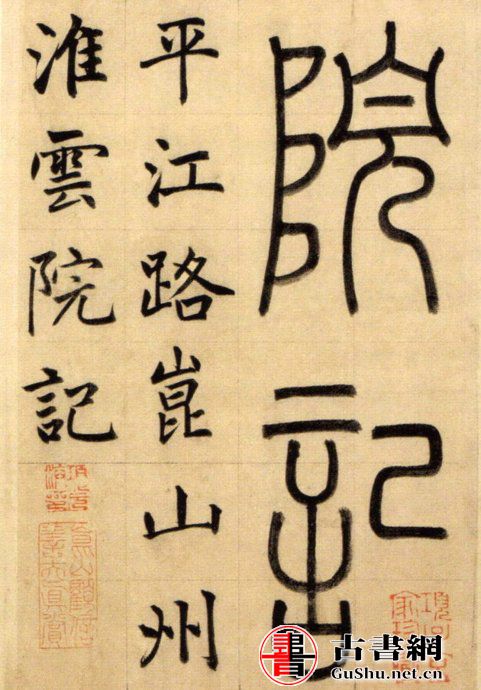 院記
平江路崑山州
淮雲院記
古書網
GuShu.net.cn